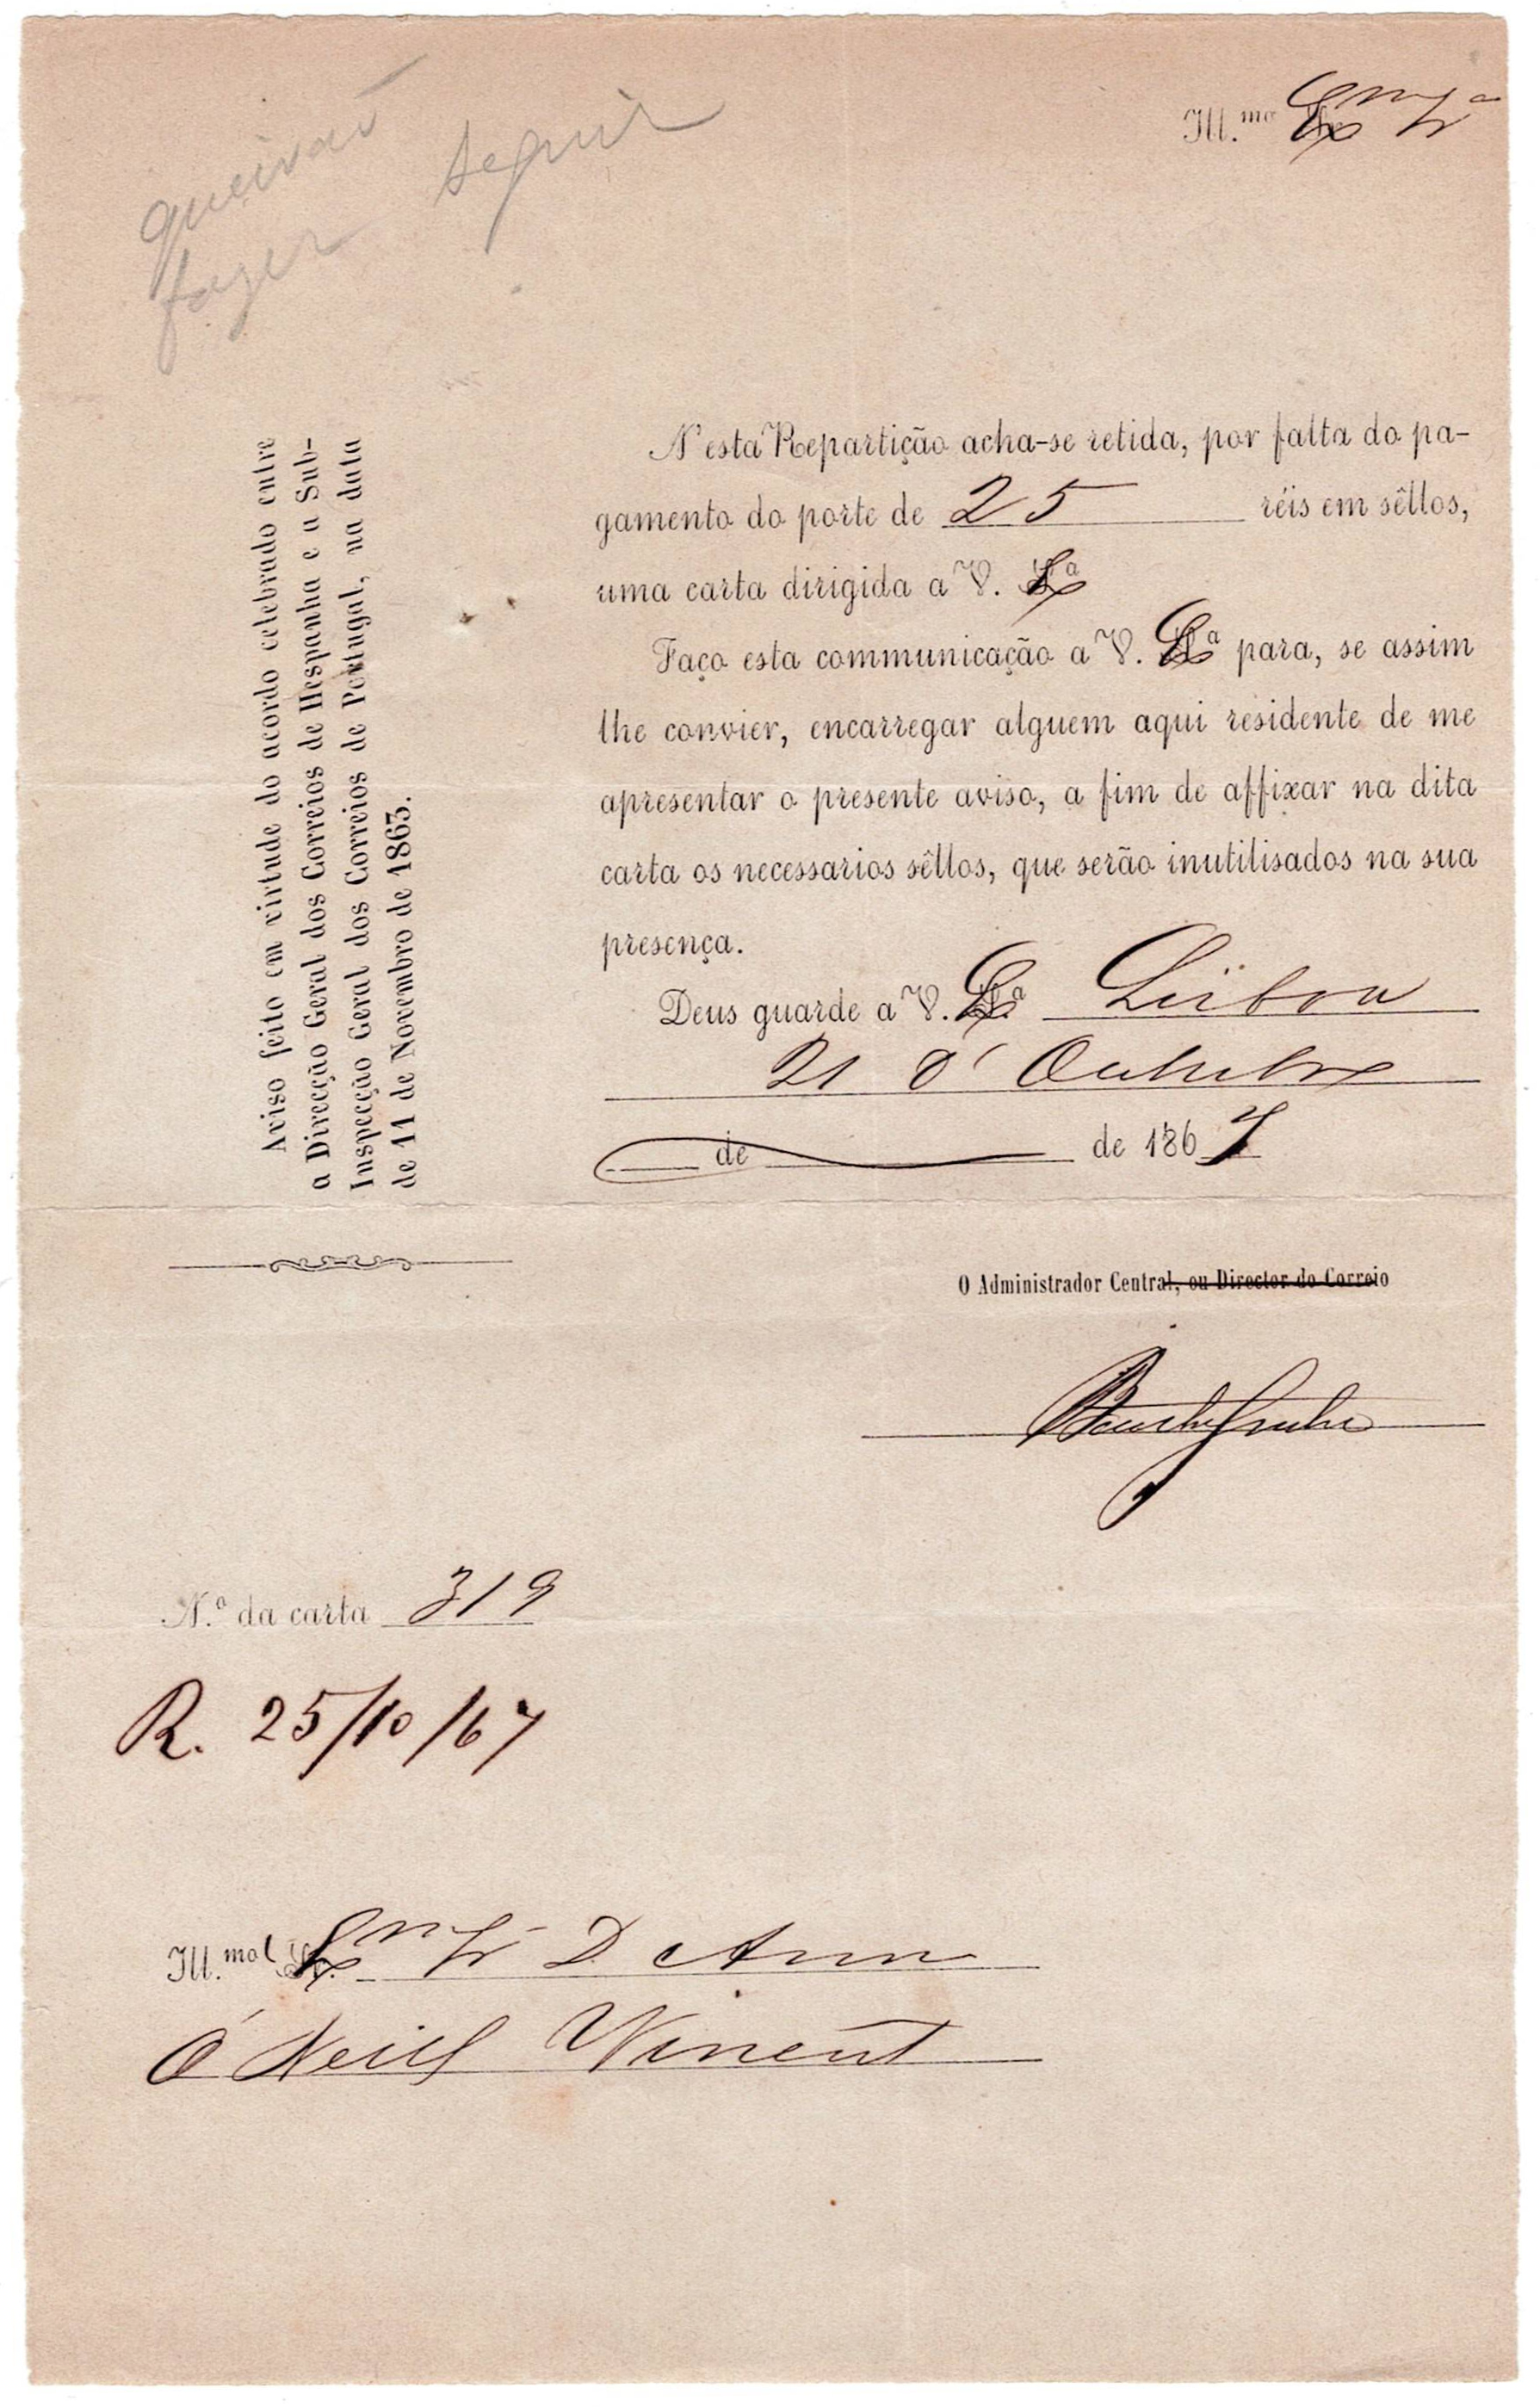 queirão
fazer seguir
Ill.mo Exma Sra
N'esta Repartição acha-se retida, por falta do pa-
gamento do porte de 25 réis em sêllos,
uma carta dirigida a V. Exa
Faço esta communicação a V. Exa para, se assim
lhe convier, encarregar alguem aqui residente de me
apresentar o presente aviso, a fim de affixar na dita
carta os necessarios sêllos, que serão inutilisados na sua
presença.
Deus guarde a V. Exa Lisboa
21 d'Outubro
de de 1867
Aviso feito em virtude do acordo celebrado entre
a Direcção Geral dos Correios de Hespanha e a Sub-
Inspecção Geral dos Correios de Portugal, na data
de 11 de Novembro de 1863.
O Administrador Central, ou Director do Correio
N.º da carta 319
R. 25/10/67
Ill.ma Exma Sra D. Ann
O'Neill Vincent